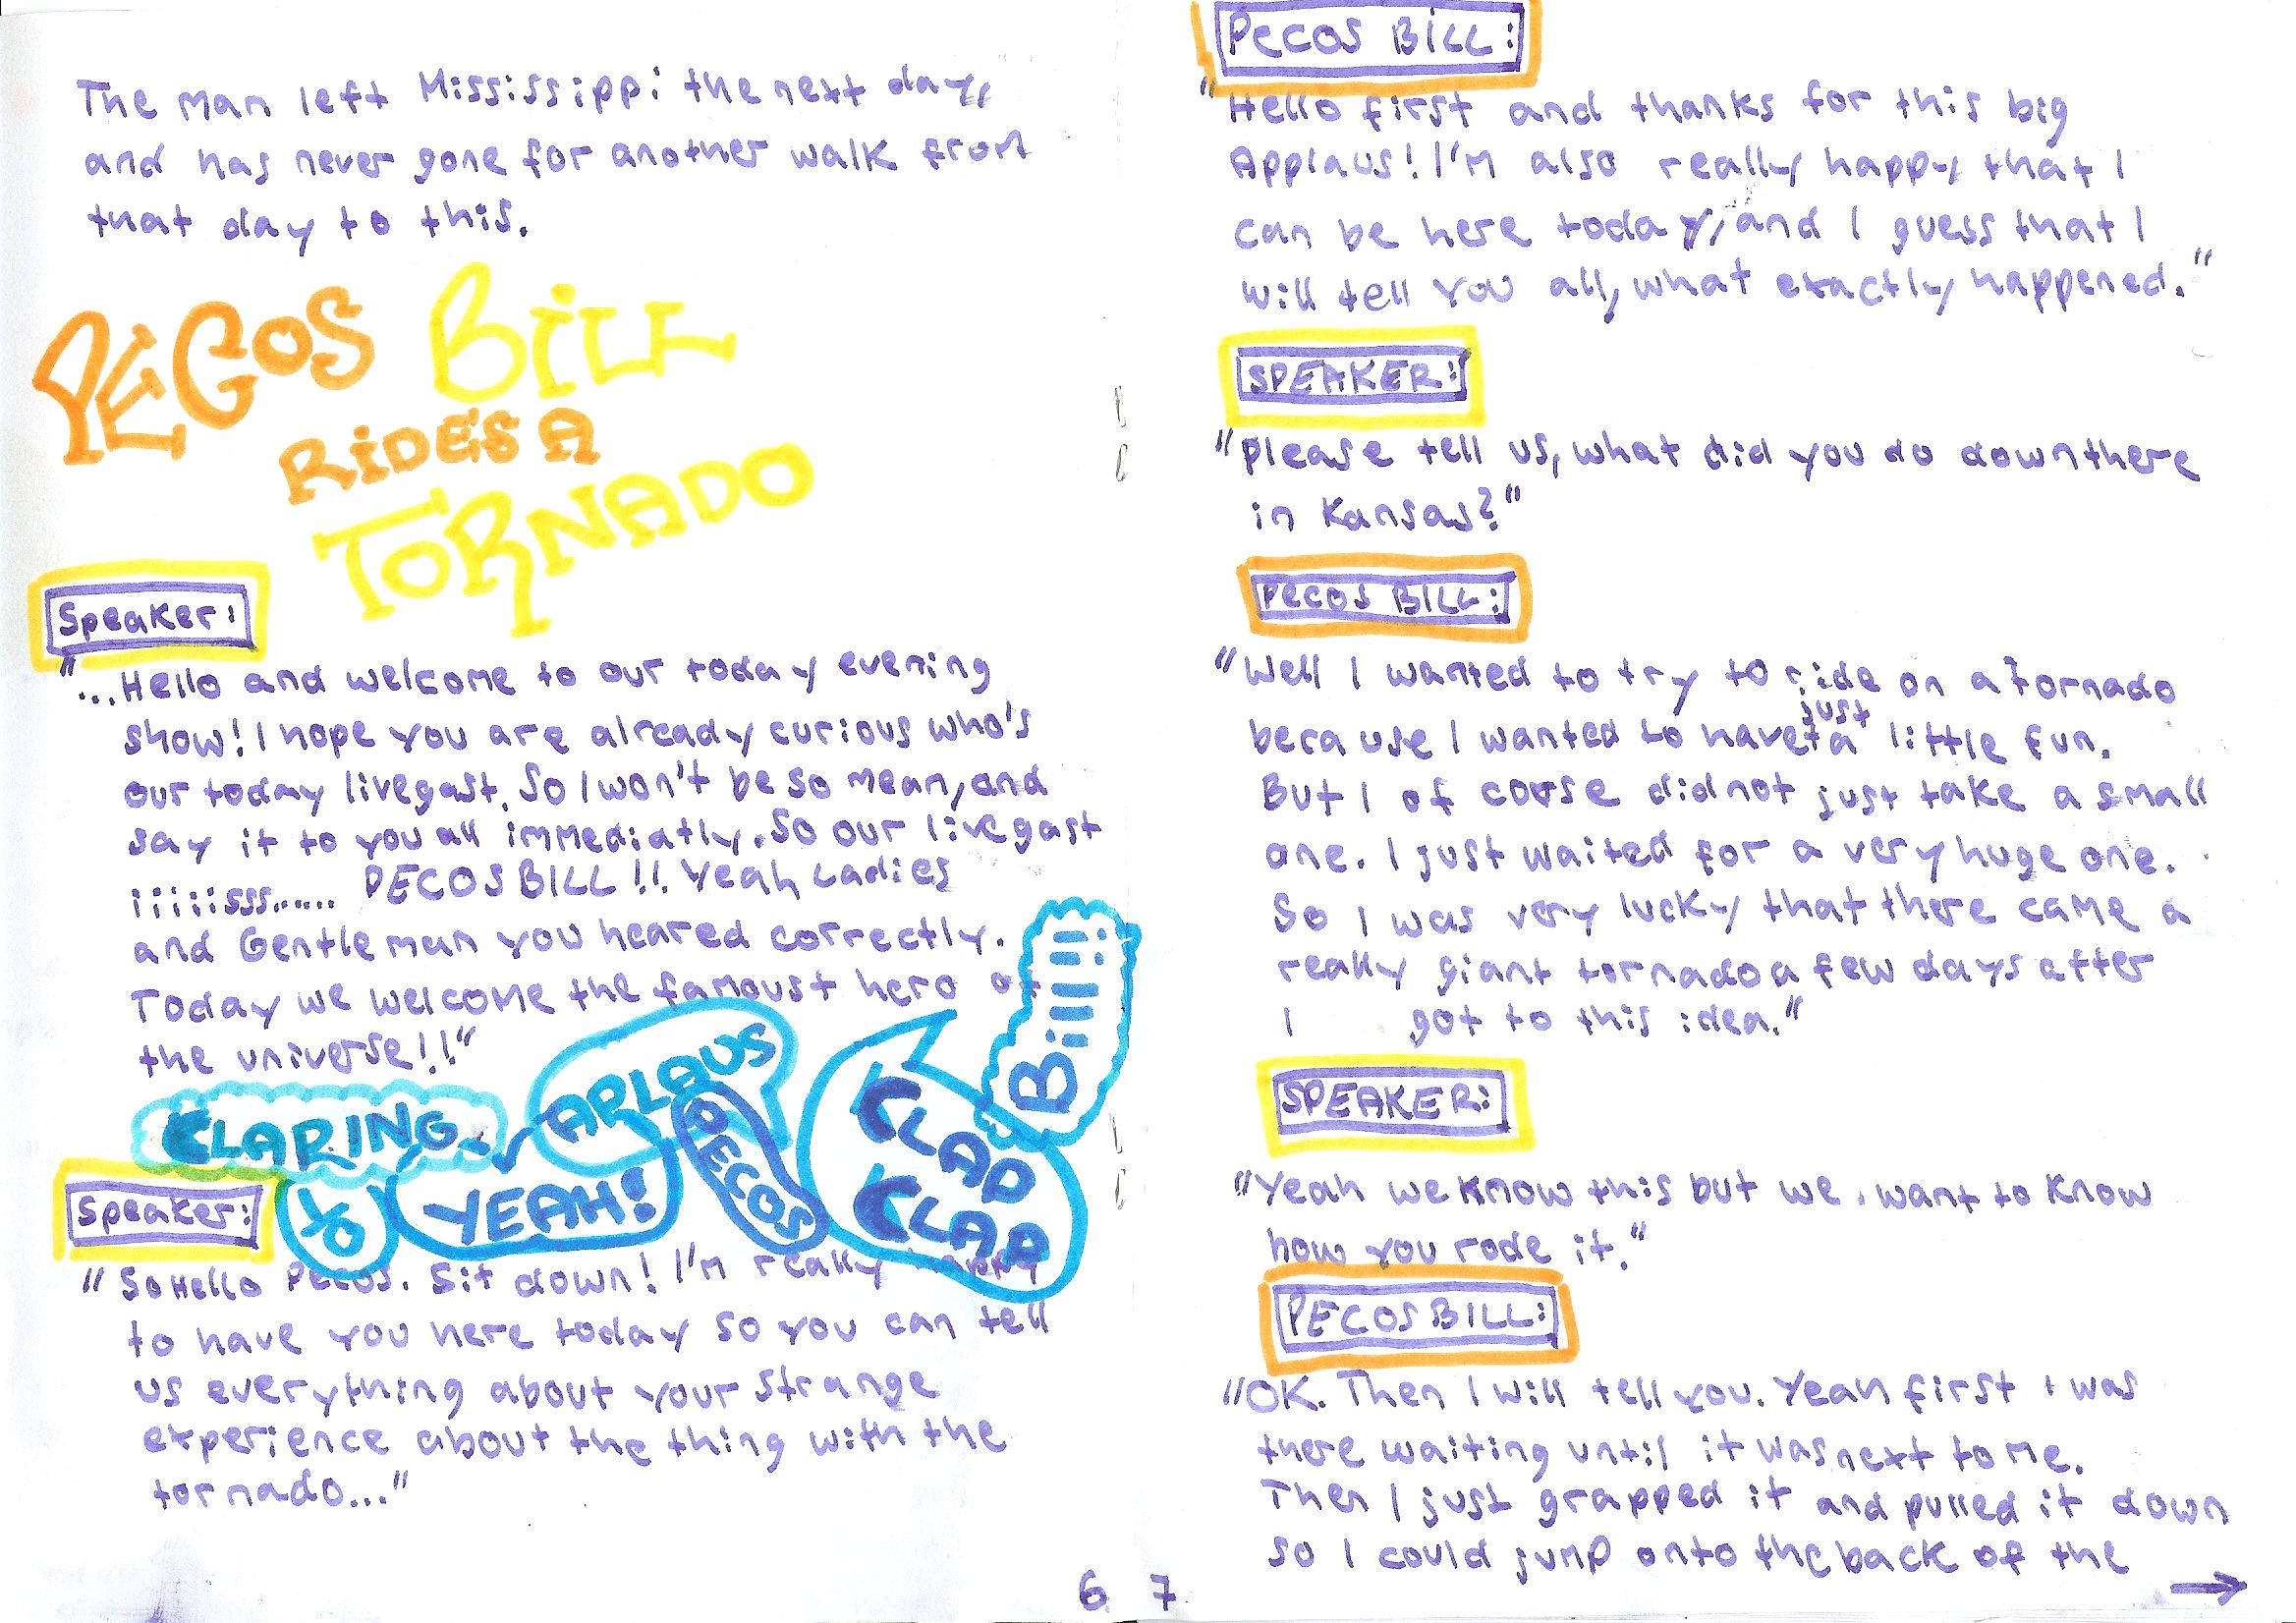 The man left Mississippi the next day,
and has never gone for another walk from
that day to this.
PECOS BILL
RIDES A
TORNADO
Speaker:
"...Hello and welcome to our today evening
show! I hope you are already curious who's
our today livegast. So I won't be so mean, and
say it to you all immediatly. So our livegast
iiiiiisss...... PECOS BILL!!. Yeah Ladies
and Gentleman you heared correctly.
Today we welcome the famoust hero of
the universe!!"
CLARING
APLAUS
Bill!!
YO
YEAH!
PECOS
KLAP
KLAP
Speaker:
"So Hello Pecos. Sit down! I'm really happy
to have you here today so you can tell
us everything about your strange
experience about the thing with the
tornado..."
6
Pecos Bill:
"Hello first and thanks for this big
Applaus! I'm also really happy that I
can be here today, and I guess that I
will tell you all, what exactly happened."
SPEAKER:
"please tell us, what did you do downthere
in Kansas?"
Pecos BILL:
"Well I wanted to try to ride on a Tornado
because I wanted to have just a little fun.
But I of course did not just take a small
one. I just waited for a very huge one.
So I was very lucky that there came a
really giant tornado a few days after
I got to this idea."
SPEAKER:
"Yeah we know this but we want to know
how you rode it."
PECOS BILL:
"OK. Then I will tell you. Yeah first I was
there waiting until it was next to me.
Then I just grapped it and pulled it down
so I could jump onto the back of the
→
7